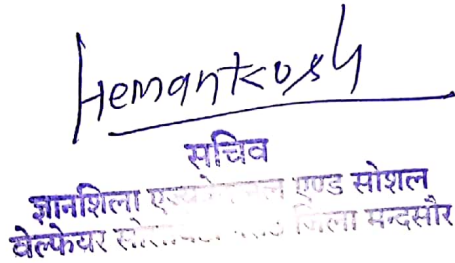 Hemantkosh
सचिव
ज्ञानशिला एण्ड सोशल
वेल्फेयर जिला मन्दसौर